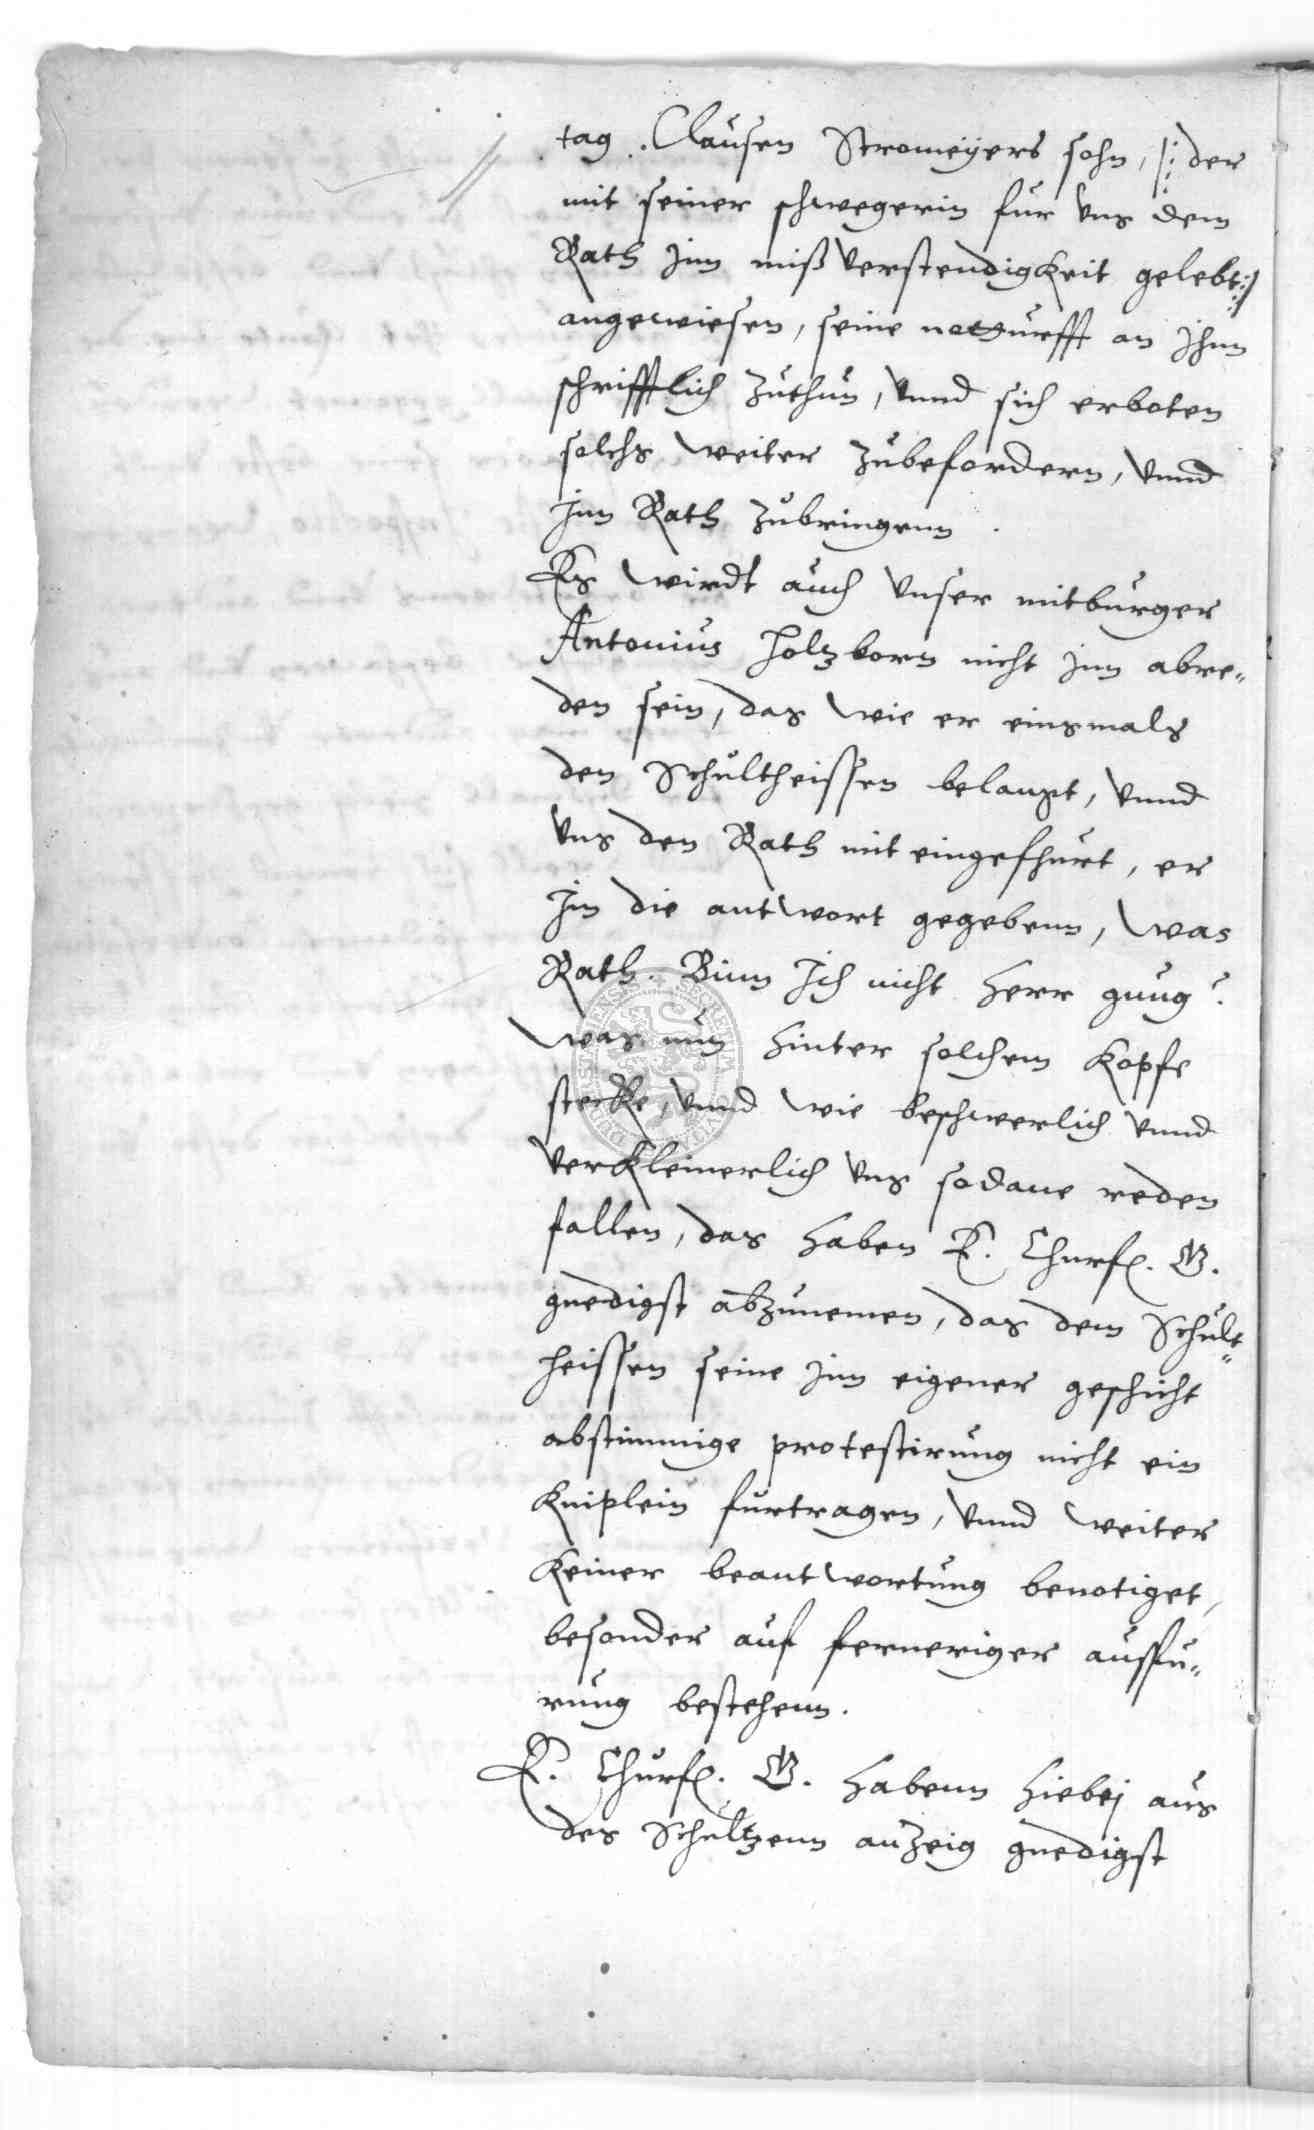 tag. Clausen Stromeÿers sohn, |: der
mit seiner schwegerin fur vns dem
Rath inn mißverstendigkeit gelebt :|
angewiesen, seine notturfft an ihnn
schrifftlich zuthun, vnnd sich erboten
solchs weiter zubefordern, vnnd
inn Rath zubringenn.
Es wirdt auch vnser mitburger
Antonius Holtzborn nicht inn abre-
den sein, das wie er einsmals
den Schultheissen belangt, vnnd
vns den Rath mit eingefhurt, er
im die antwort gegebenn, was
Rath. Binn Ich nicht Herr gnug?
was nun hinter solchem kopfe
stecke, vnnd wie beschwerlich vnnd
verkleinerlich vns sodane reden
fallen, das haben E. Churf. G.
gnedigst abzunemen, das dem Schult-
heissen seine inn eigener geschicht
abstimmige protestirung nicht ein
kniplein furtragen, vnnd weiter
keiner beantwortung benotiget,
besonder auf ferneriger ausfu-
rung bestehenn.
E. Churf. G. habenn hiebej aus
des Schultzenn anzeig gnedigst